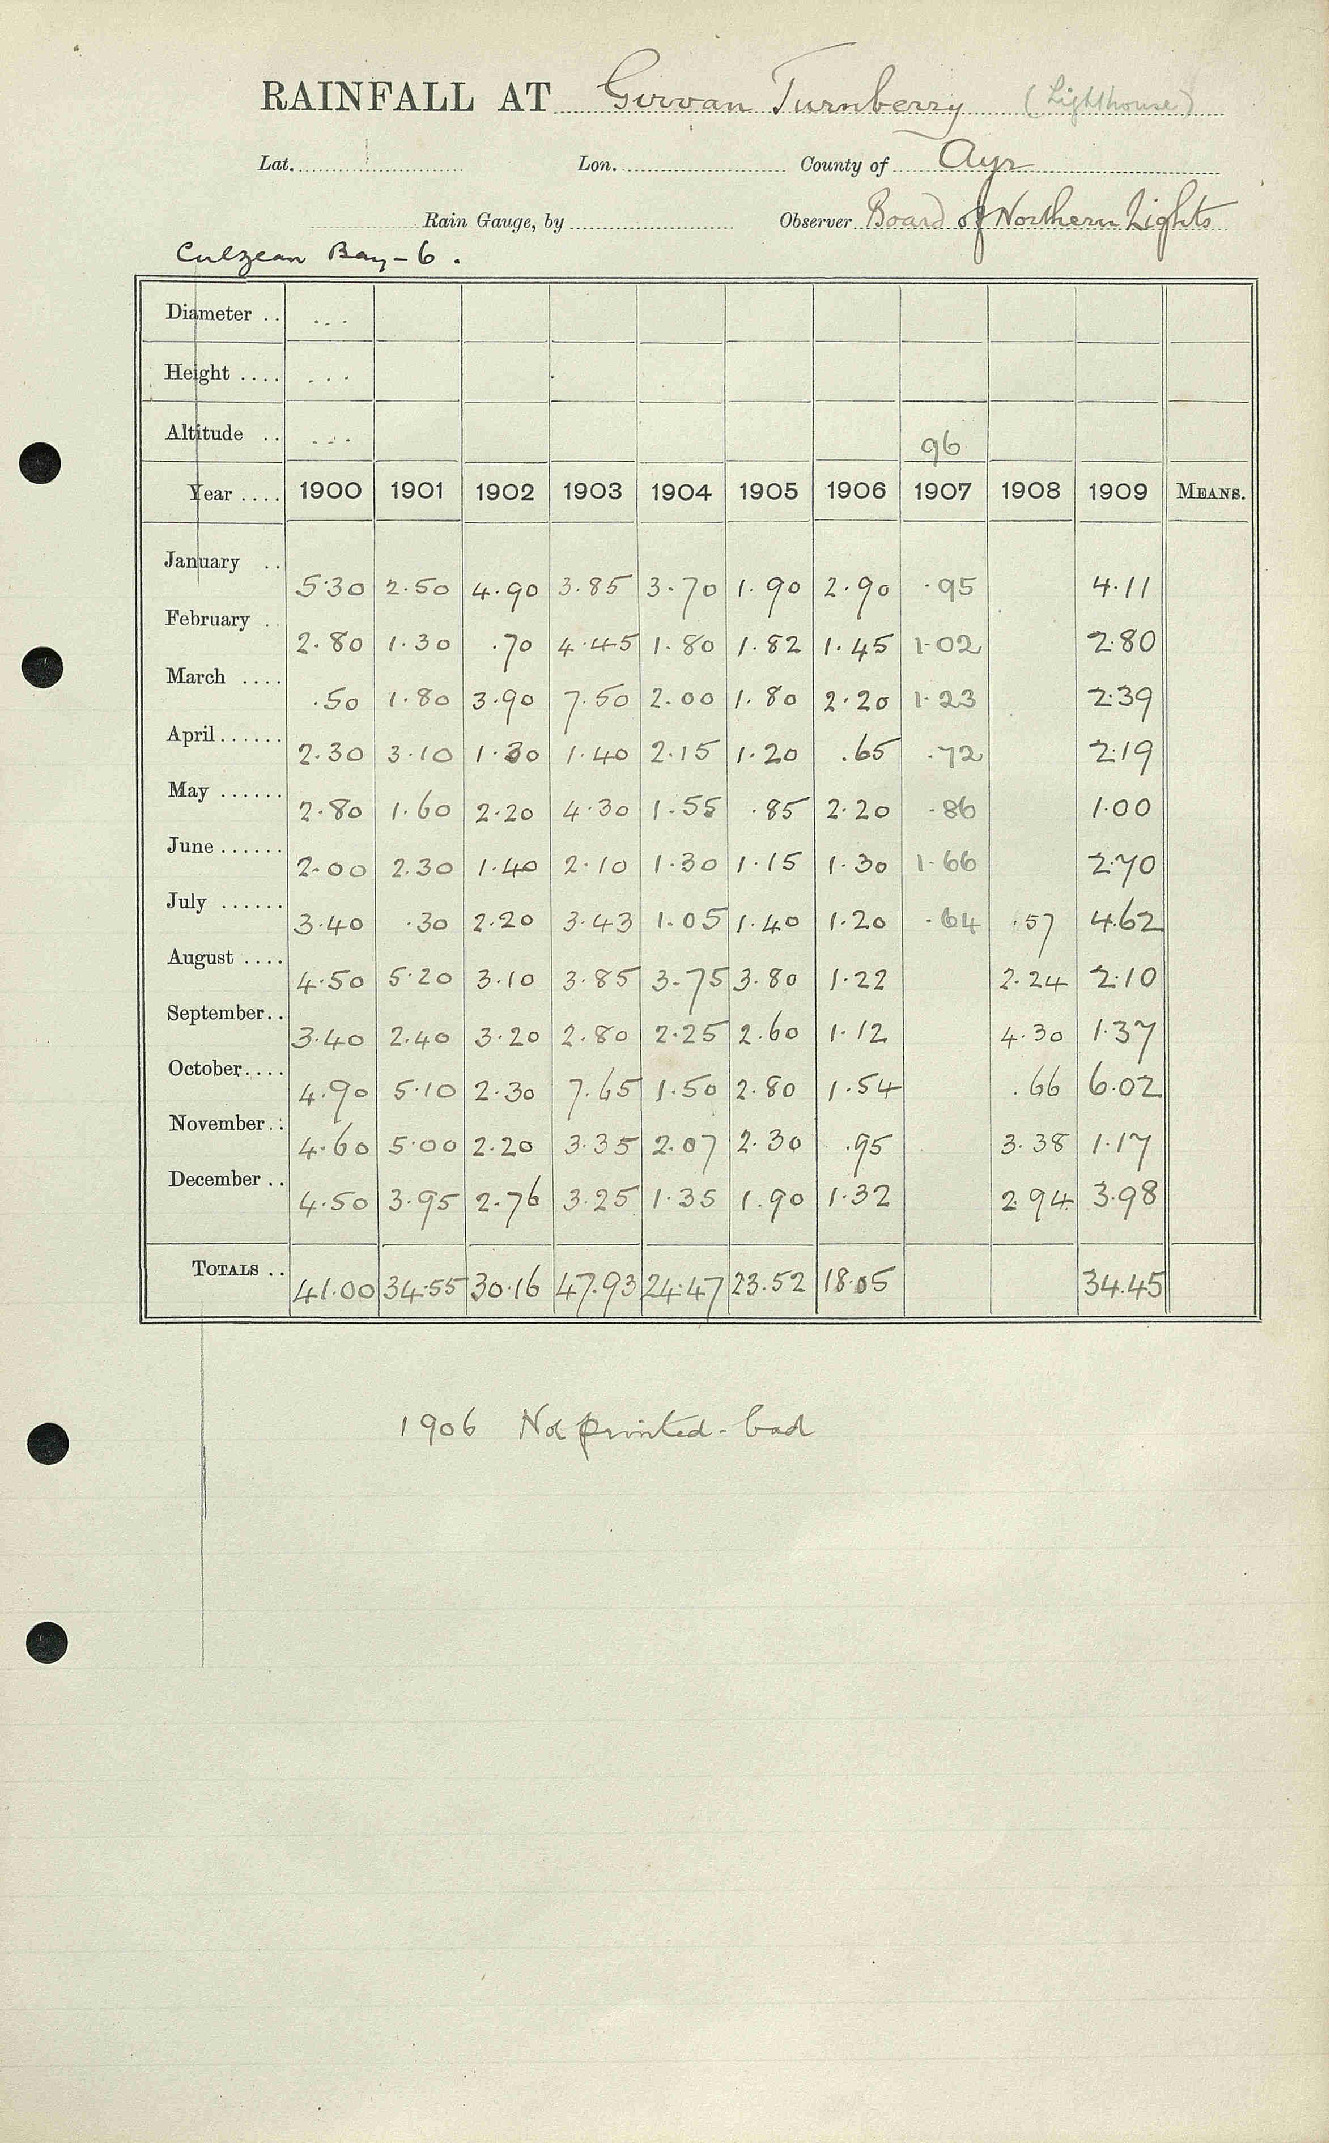 RAINFALL AT Girvan Turnberry (Lighthouse)
Lat. Lon. County of Ayr
Rain Gauge, by Observer Board of Northern Lights
Culzean Bay - 6.
Diameter .. ...
Height .... ...
Altitude .. ... 96
Year .... 1900 1901 1902 1903 1904 1905 1906 1907 1908 1909 MEANS.
January .. 5.30 2.50 4.90 3.85 3.70 1.90 2.90 .95 4.11
February . 2.80 1.30 .70 4.45 1.80 1.82 1.45 1.02 2.80
March .... .50 1.80 3.90 7.50 2.00 1.80 2.20 1.23 2.39
April ...... 2.30 3.10 1.30 1.40 2.15 1.20 .65 .72 2.19
May ...... 2.80 1.60 2.20 4.30 1.55 .85 2.20 .86 1.00
June ...... 2.00 2.30 1.40 2.10 1.30 1.15 1.30 1.66 2.70
July ...... 3.40 .30 2.20 3.43 1.05 1.40 1.20 .64 .57 4.62
August .... 4.50 5.20 3.10 3.85 3.75 3.80 1.22 2.24 2.10
September .. 3.40 2.40 3.20 2.80 2.25 2.60 1.12 4.30 1.37
October .... 4.90 5.10 2.30 7.65 1.50 2.80 1.54 .66 6.02
November .. 4.60 5.00 2.20 3.35 2.07 2.30 .95 3.38 1.17
December .. 4.50 3.95 2.76 3.25 1.35 1.90 1.32 2.94 3.98
TOTALS .. 41.00 34.55 30.16 47.93 24.47 23.52 18.05 34.45
1906 Not printed - bad